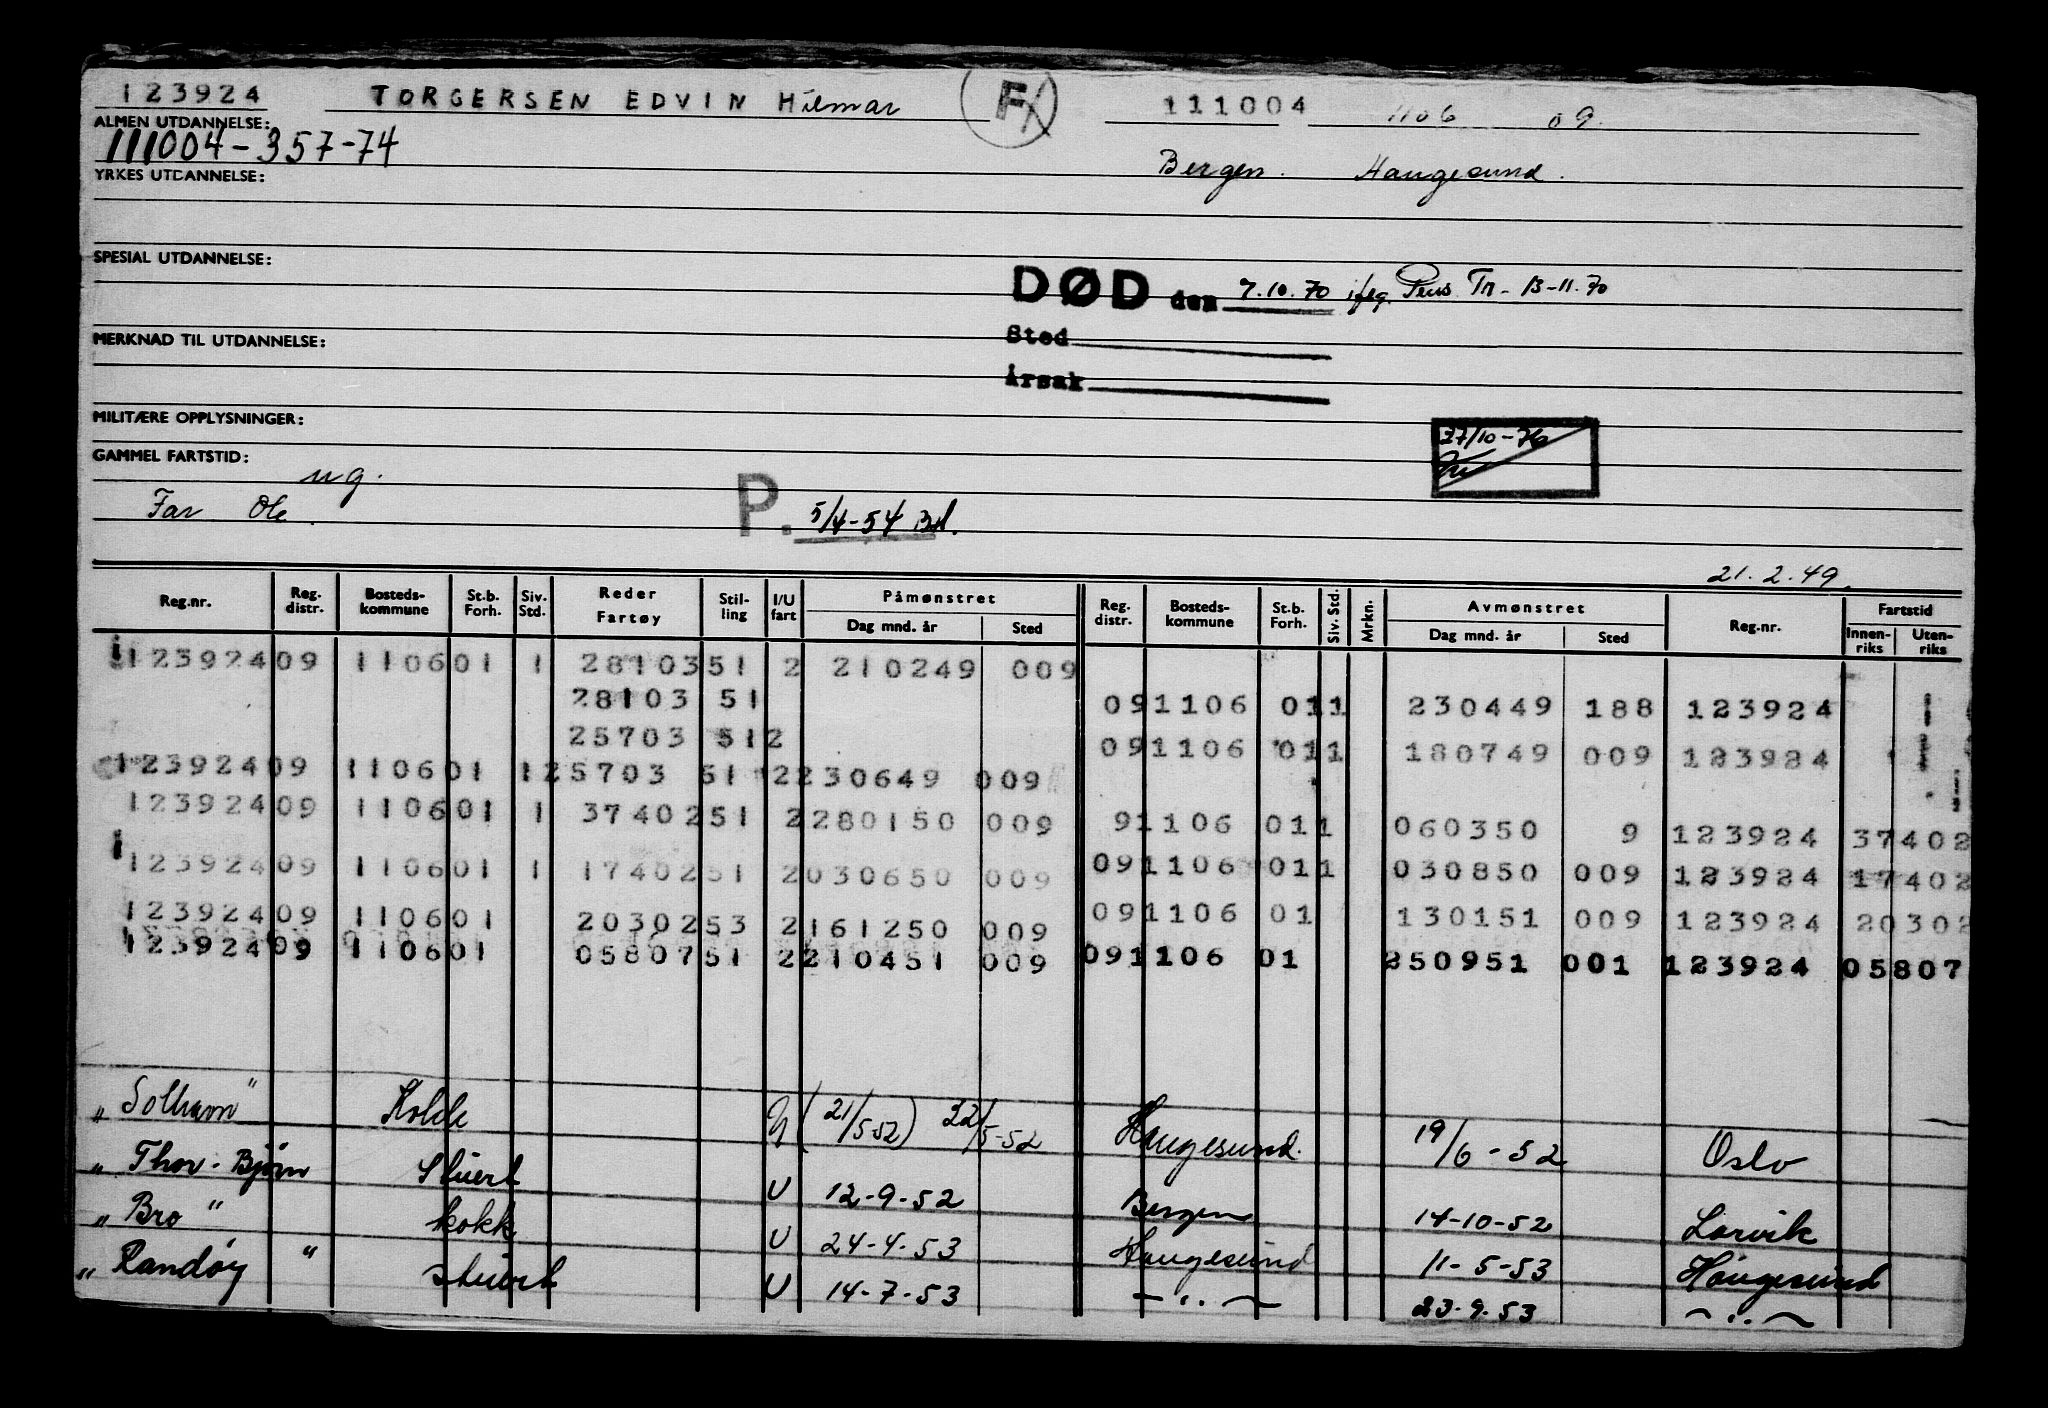 123924 TORGERSEN EDVIN Hilmar F 111004 1106 09.
ALMEN UTDANNELSE:
111004-357-74
YRKES UTDANNELSE:
Bergen. Haugesund.
SPESIAL UTDANNELSE:
DØD den 7.10.70 ifлg. Pens. Tr. 13-11.70
Sted
MERKNAD TIL UTDANNELSE:
Årsak
MILITÆRE OPPLYSNINGER:
27/10-76
GAMMEL FARTSTID:
ug.
Far Ole. P. 5/4-54
21.2.49.
Reg.nr. Reg. distr. Bosteds-kommune St.b. Forh. Siv. Std. Reder Fartøy Stil-ling I/U fart Påmønstret Dag mnd. år Sted Reg. distr. Bosteds-kommune St.b. Forh. Siv. Std. Mrkn. Avmønstret Dag mnd. år Sted Reg.nr. Fartstid Innen-riks Uten-riks
123924 09 1106 01 1 28103 51 2 210249 009
28103 51 09 1106 01 1 230449 188 123924
25703 51 2 09 1106 01 1 180749 009 123924
123924 09 1106 01 1 25703 51 2 230649 009
123924 09 1106 01 1 37402 51 2 280150 009 9 1106 01 1 060350 9 123924 37402
123924 09 1106 01 1 17402 51 2 030650 009 09 1106 01 1 030850 009 123924 17402
123924 09 1106 01 20302 53 2 161250 009 09 1106 01 130151 009 123924 20302
123924 09 1106 01 05807 51 2 210451 009 09 1106 01 250951 001 123924 05807
„Solhavn" Kokk U (21/5 52) 22/5-52 Haugesund. 19/6-52 Oslo
„Thor-Bjørn Stuert U 12-9-52 Bergen 14-10-52 Larvik
„Bro" kokk U 24-4-53 Haugesund 11-5-53 Haugesund
„Randøy" stuert U 14-7-53 — „ — 23-9-53 — „ —